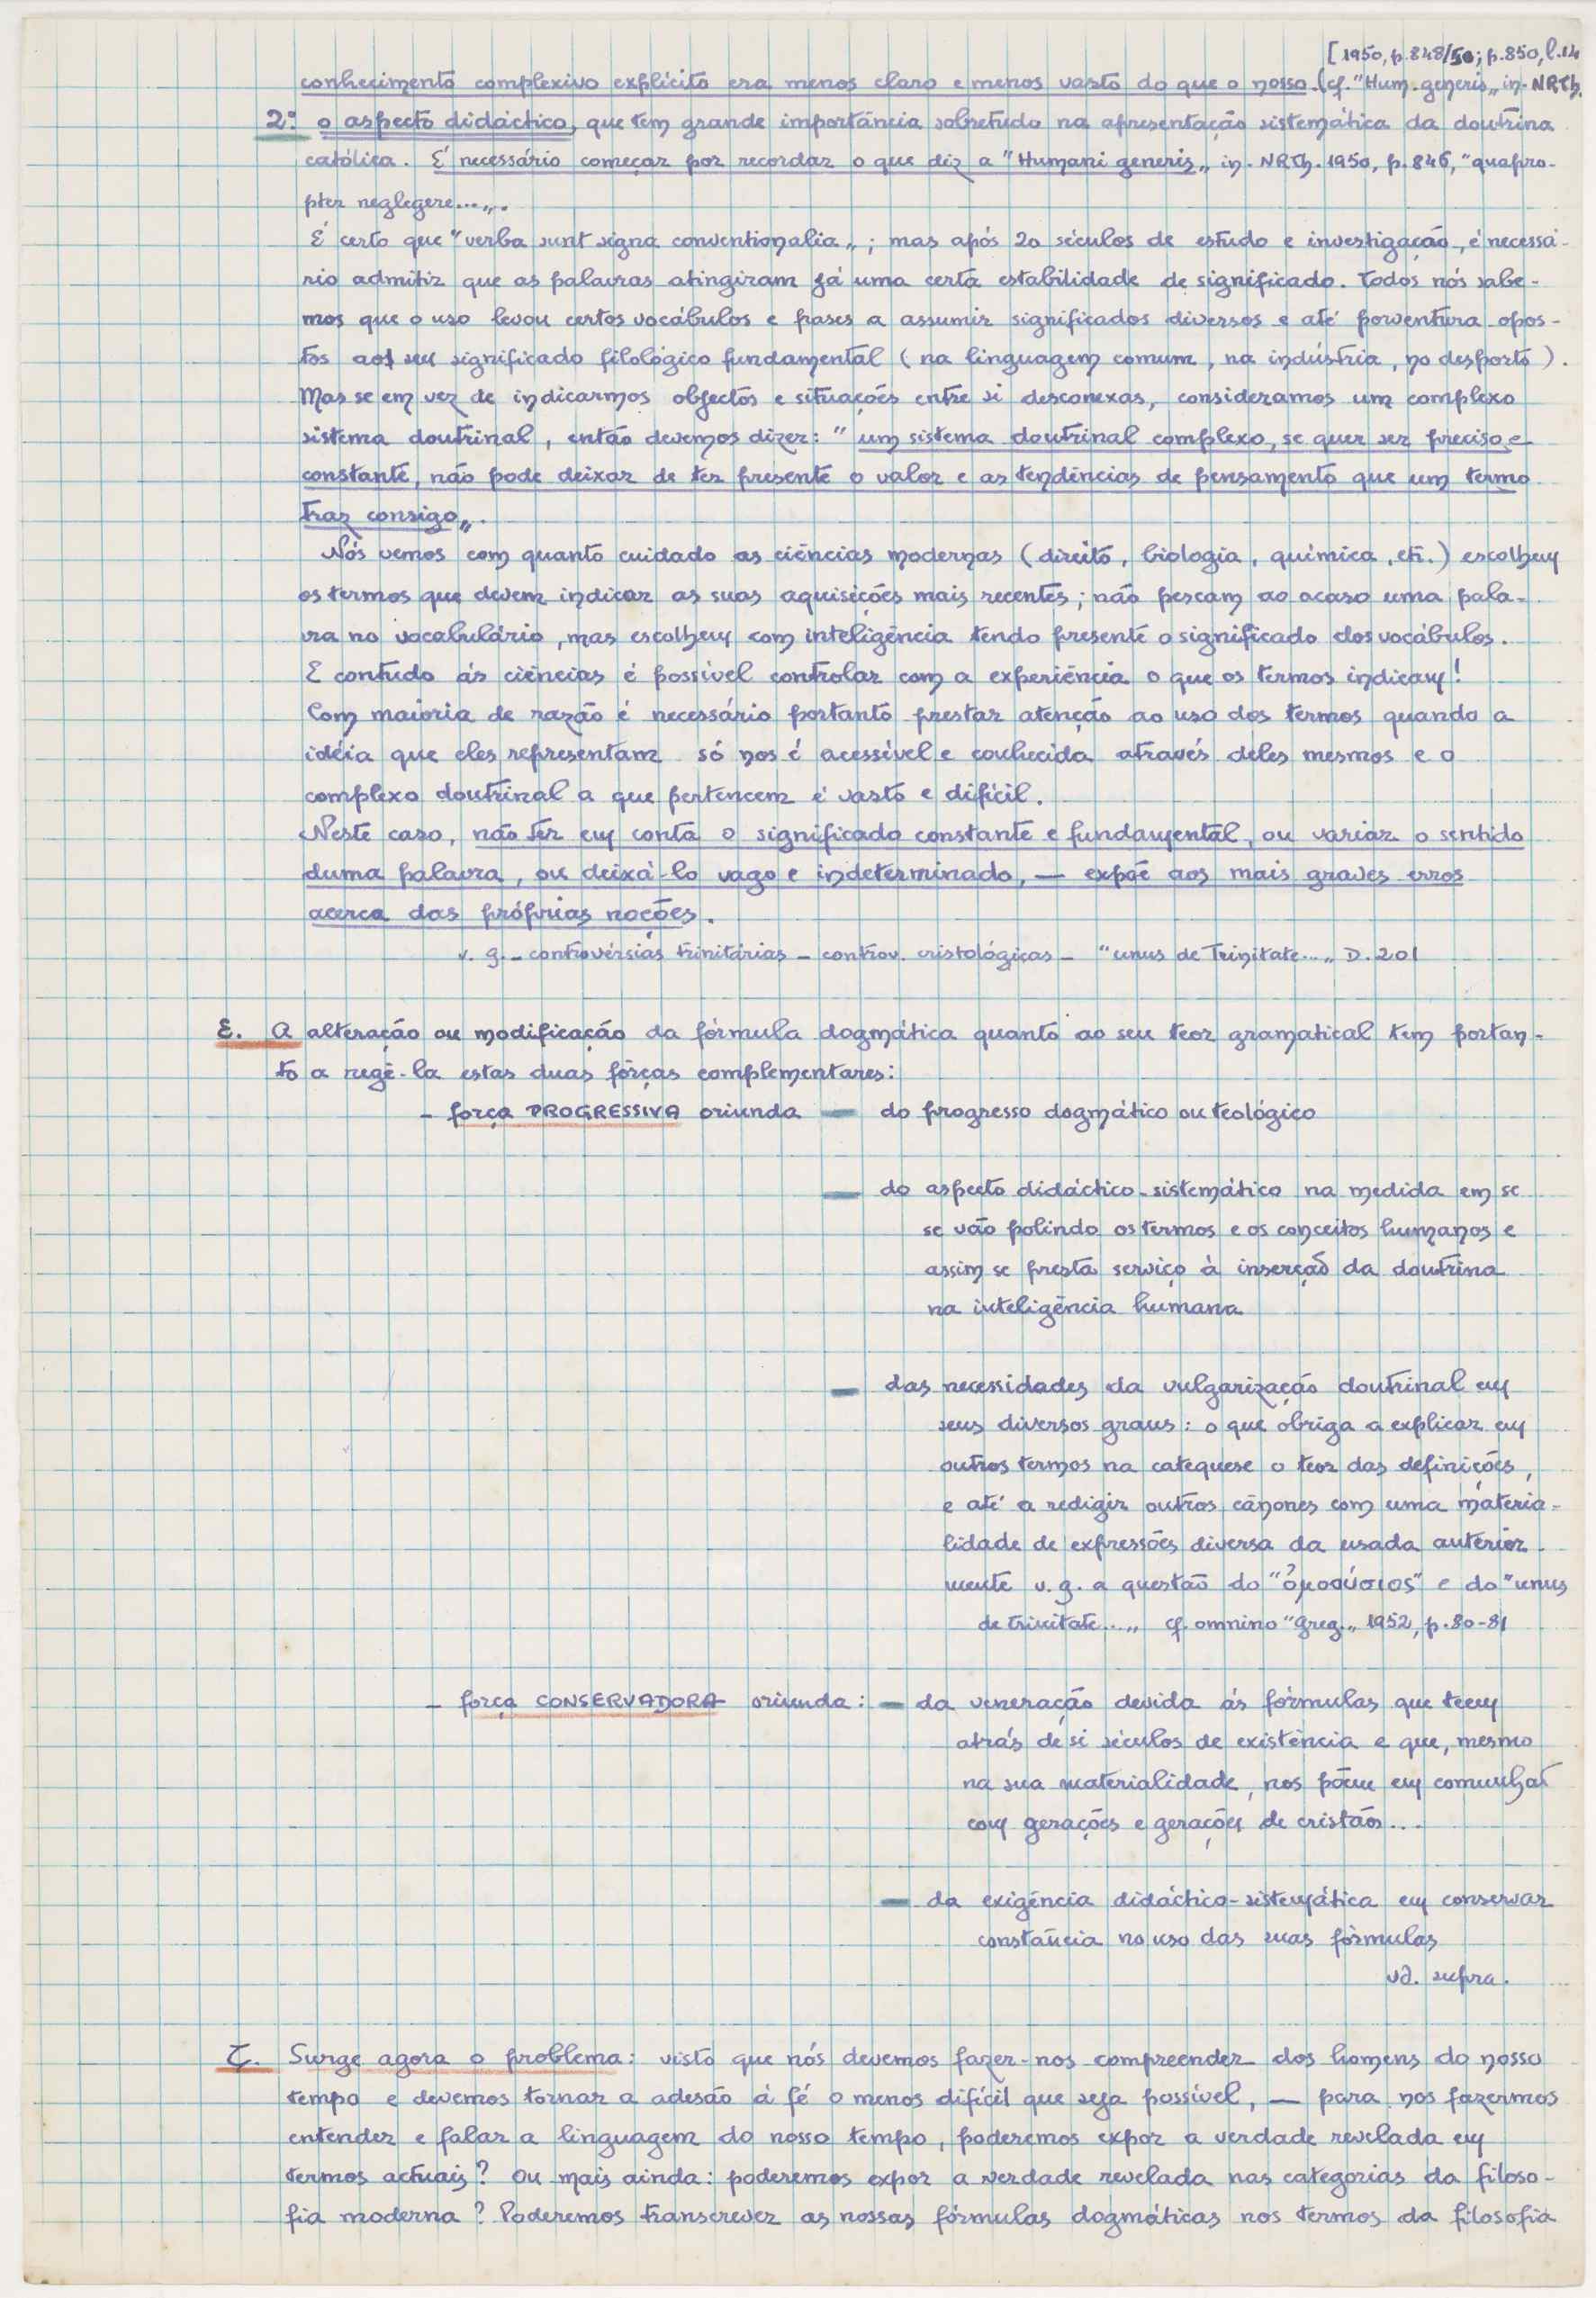 [1950, p. 848/50; p. 850, l. 14
conhecimento complexivo explícito era menos claro e menos vasto do que o nosso. (cf. "Hum. generis„ in NRTh.
2º o aspecto didáctico, que tem grande importância sobretudo na apresentação sistemática da doutrina
católica. É necessário começar por recordar o que diz a "Humani generis„ in NRTh. 1950, p. 846, "quapro-
pter neglegere...„.
É certo que "verba sunt signa conventionalia„; mas após 20 séculos de estudo e investigação, é necessá-
rio admitir que as palavras atingiram já uma certa estabilidade de significado. Todos nós sabe-
mos que o uso levou certos vocábulos e frases a assumir significados diversos e até porventura opos-
tos ao seu significado filológico fundamental (na linguagem comum, na indústria, no desporto).
Mas se em vez de indicarmos objectos e situações entre si desconexas, consideramos um complexo
sistema doutrinal, então devemos dizer: "um sistema doutrinal complexo, se quer ser preciso e
constante, não pode deixar de ter presente o valor e as tendências de pensamento que um termo
traz consigo„.
Nós vemos com quanto cuidado as ciências modernas (direito, biologia, química, etc.) escolhem
os termos que devem indicar as suas aquisições mais recentes; não pescam ao acaso uma pala-
vra no vocabulário, mas escolhem com inteligência tendo presente o significado dos vocábulos.
E contudo ás ciências é possível controlar com a experiência o que os termos indicam!
Com maioria de razão é necessário portanto prestar atenção ao uso dos termos quando a
idéia que eles representam só nos é acessível e conhecida através deles mesmos e o
complexo doutrinal a que pertencem é vasto e difícil.
Neste caso, não ter em conta o significado constante e fundamental, ou variar o sentido
duma palavra, ou deixá-lo vago e indeterminado, — expõe aos mais graves erros
acerca das próprias noções.
v. g. - controvérsias trinitárias - controv. cristológicas - "unus de Trinitate...„ D. 201
E. A alteração ou modificação da fórmula dogmática quanto ao seu teor gramatical tem portan-
to a regê-la estas duas fôrças complementares:
- força PROGRESSIVA oriunda — do progresso dogmático ou teológico
— do aspecto didáctico-sistemático na medida em se
se vão polindo os termos e os conceitos humanos e
assim se presta serviço à inserção da doutrina
na inteligência humana
— das necessidades da vulgarização doutrinal em
seus diversos graus: o que obriga a explicar em
outros termos na catequese o teor das definições,
e até a redigir outros cânones com uma materia-
lidade de expressões diversa da usada anterior-
mente v. g. a questão do "ὁμοούσιος" e do "unus
de trinitate...„ cf. omnino "Greg.„ 1952, p. 80-81
- força CONSERVADORA oriunda: — da veneração devida ás fórmulas que teem
atrás de si séculos de existência e que, mesmo
na sua materialidade, nos põem em comunhão
com gerações e gerações de cristãos...
— da exigência didáctico-sistemática em conservar
constância no uso das suas fórmulas
vd. supra.
Z. Surge agora o problema: visto que nós devemos fazer-nos compreender dos homens do nosso
tempo e devemos tornar a adesão á fé o menos difícil que seja possível, — para nos fazermos
entender e falar a linguagem do nosso tempo, poderemos expor a verdade revelada em
termos actuais? Ou mais ainda: poderemos expor a verdade revelada nas categorias da filoso-
fia moderna? Poderemos transcrever as nossas fórmulas dogmáticas nos termos da filosofia